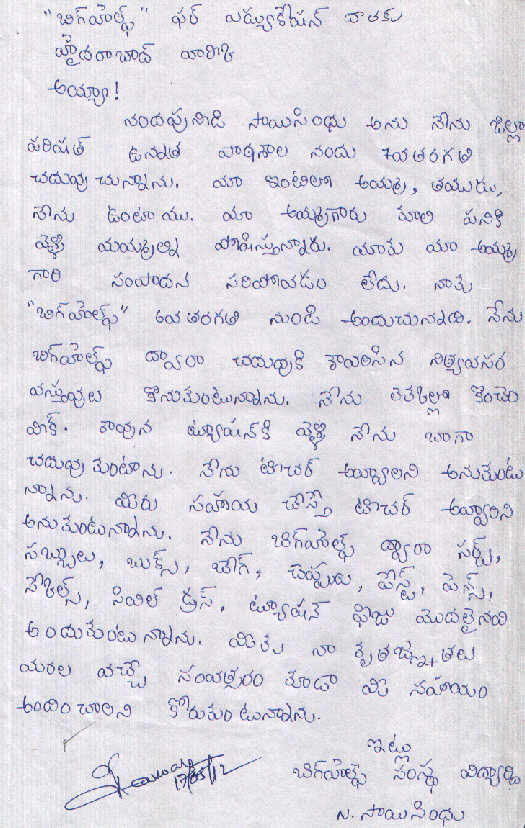 "బిగ్‌హెల్ప్" ఫర్ ఎడ్యుకేషన్ దాతకు
హైదరాబాద్ వారికి
అయ్యా!
వందపునేడి సాయిసింధు అను నేను జిల్లా
పరిషత్ ఉన్నత పాఠశాల నందు 7వతరగతి
చదువు చున్నాను. మా ఇంటిలో అమ్మ, తమ్ముడు,
నేను ఉంటాము. మా అమ్మగారు కూలి పనికి
వెళ్ళి మమ్మల్ని పోషిస్తున్నారు. మాకు మా అమ్మ
గారి సంపాదన సరిపోవడం లేదు. నాకు
"బిగ్‌హెల్ప్" 6వ తరగతి నుండి అందుచున్నది. నేను
బిగ్‌హెల్ప్ ద్వారా చదువుకి కావలసిన నిత్యవసర
వస్తువులు కొనుకుంటున్నాను. నేను కొంచెం
వీక్. కావున ట్యూషన్‌కి వెళ్ళి నేను బాగా
చదువు కుంటాను. నేను టీచర్ అవ్వాలని అనుకుంటు
న్నాను. మీరు సహాయ చేస్తే టీచర్ అవ్వాలని
అనుకుంటున్నాను. నేను బిగ్‌హెల్ప్ ద్వారా సర్ఫ్,
సబ్బులు, బుక్స్, బ్యాగ్, చెప్పులు, పేస్ట్, పెన్స్,
స్కేల్స్, సివిల్ డ్రస్, ట్యూషన్ ఫీజు మొదలైనవి
అందుకుంటున్నాను. మీకు నా కృతజ్ఞతలు
మరల వచ్చే సంవత్సరం కూడా మీ సహాయం
అందించాలని కోరుకుంటున్నాను.
ఇట్లు
17/05/12
బిగ్‌హెల్ప్ సంస్థ విద్యార్థి
N. సాయిసింధు